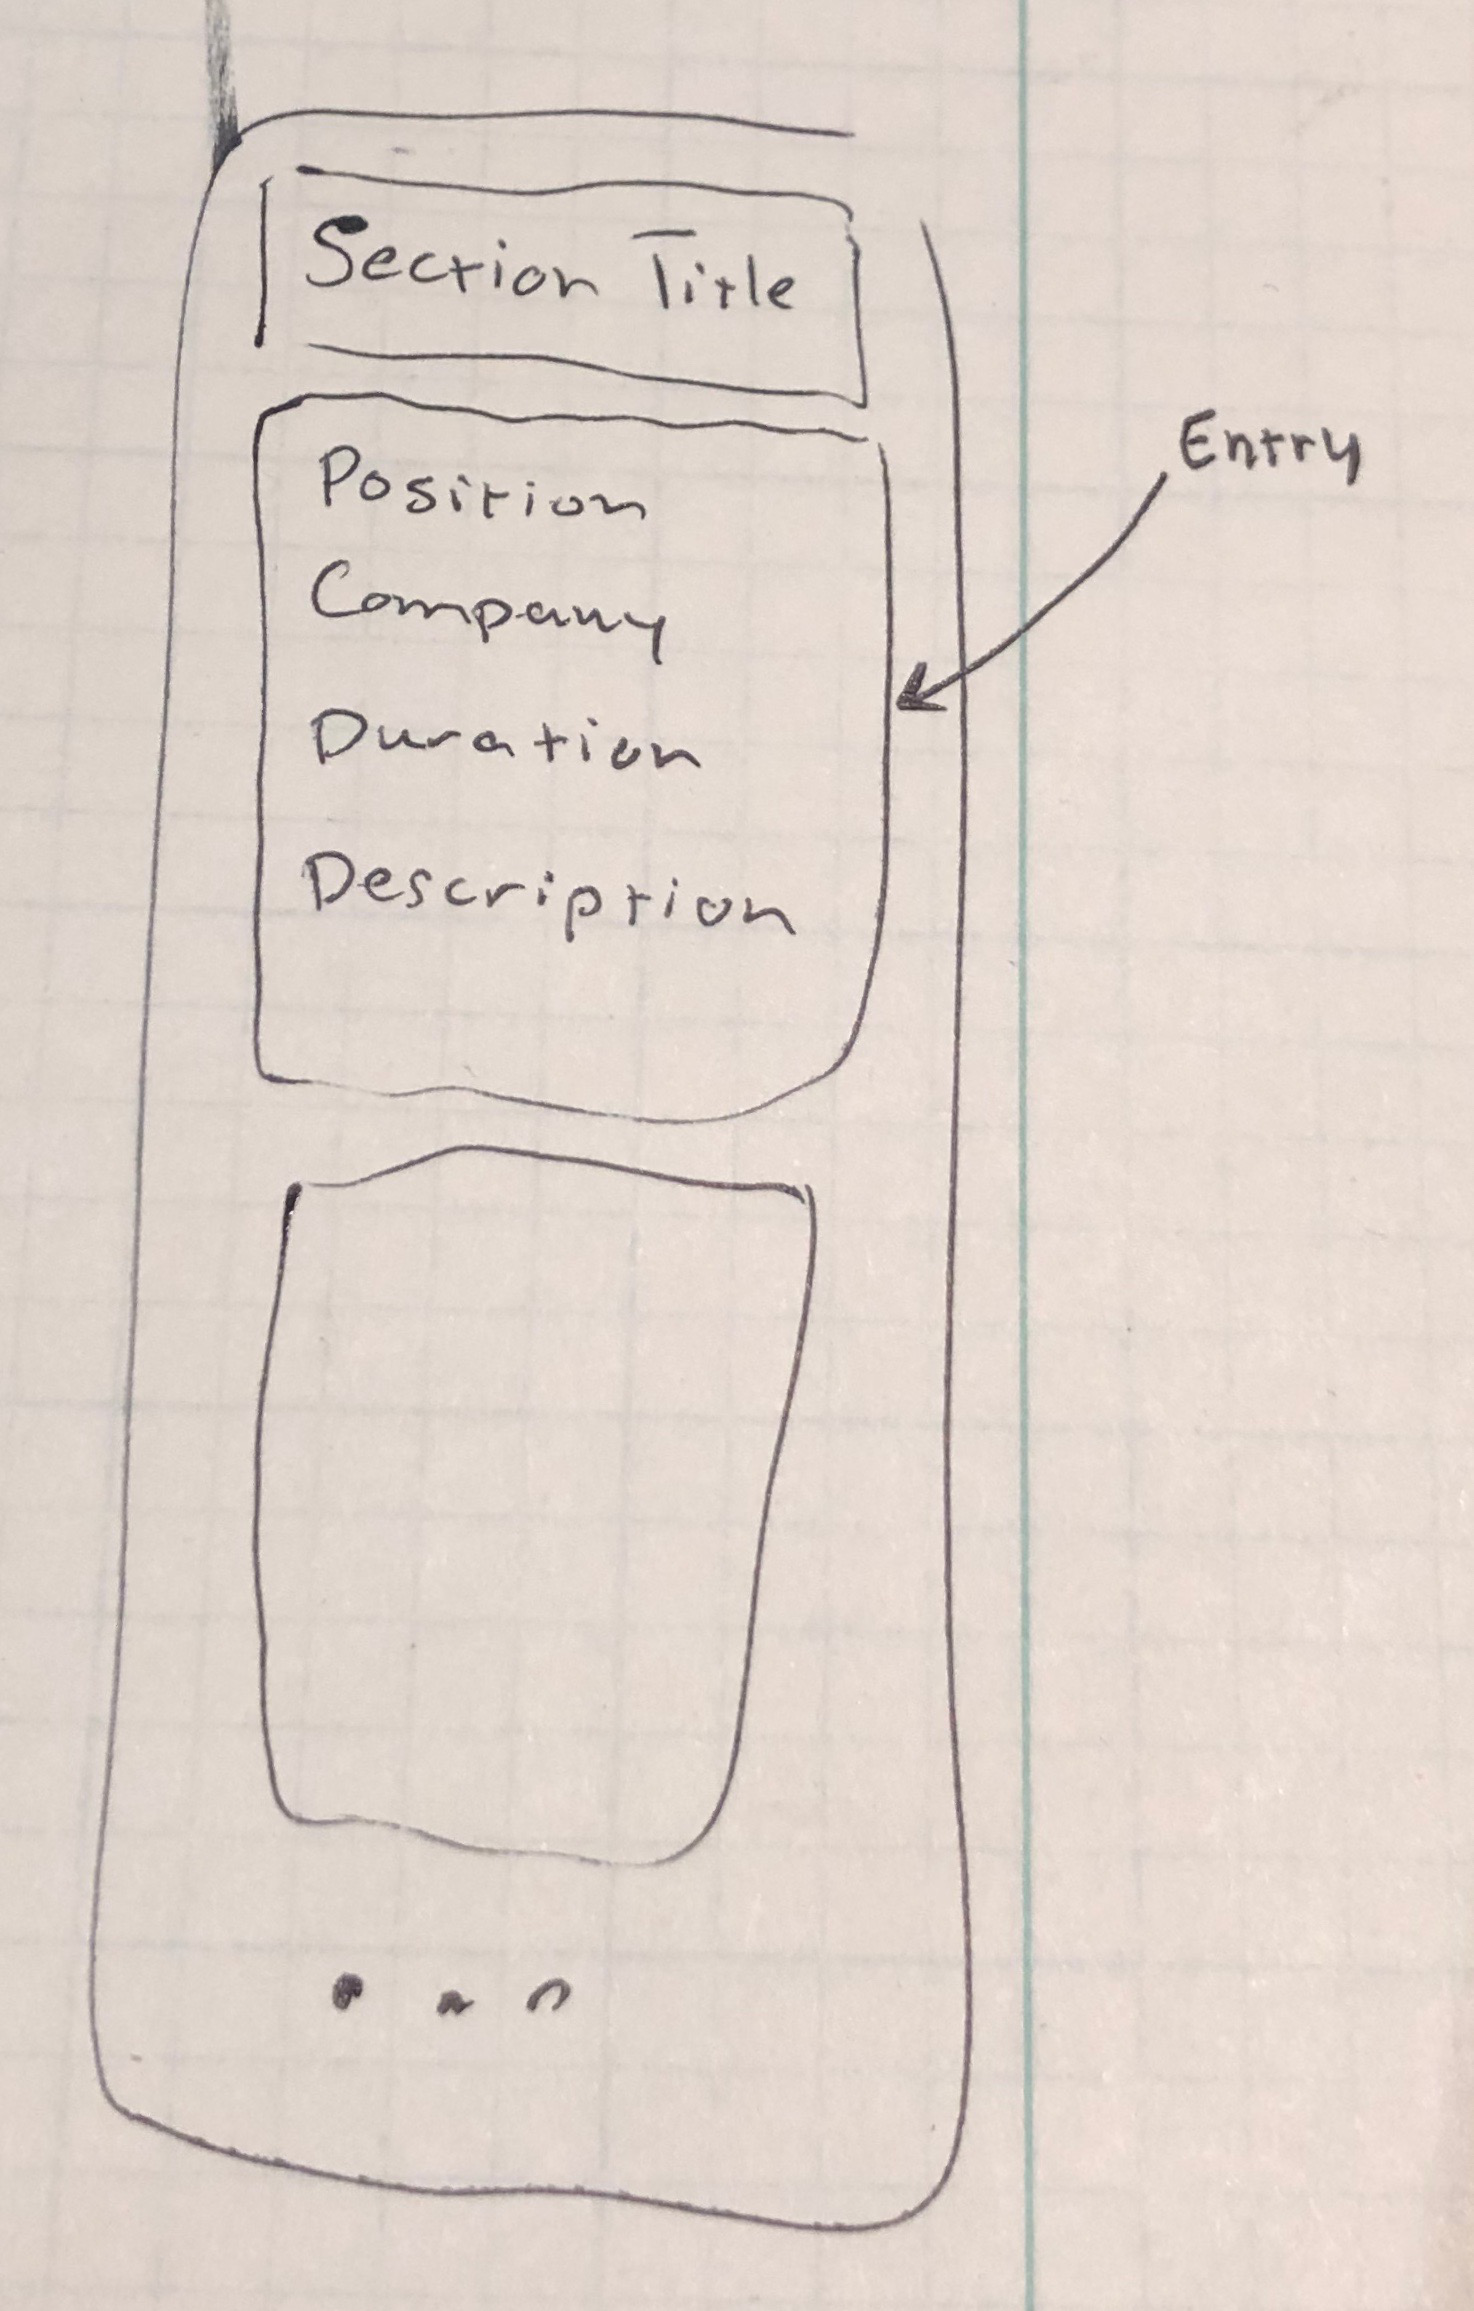 Section Title
Entry
Position
Company
Duration
Description